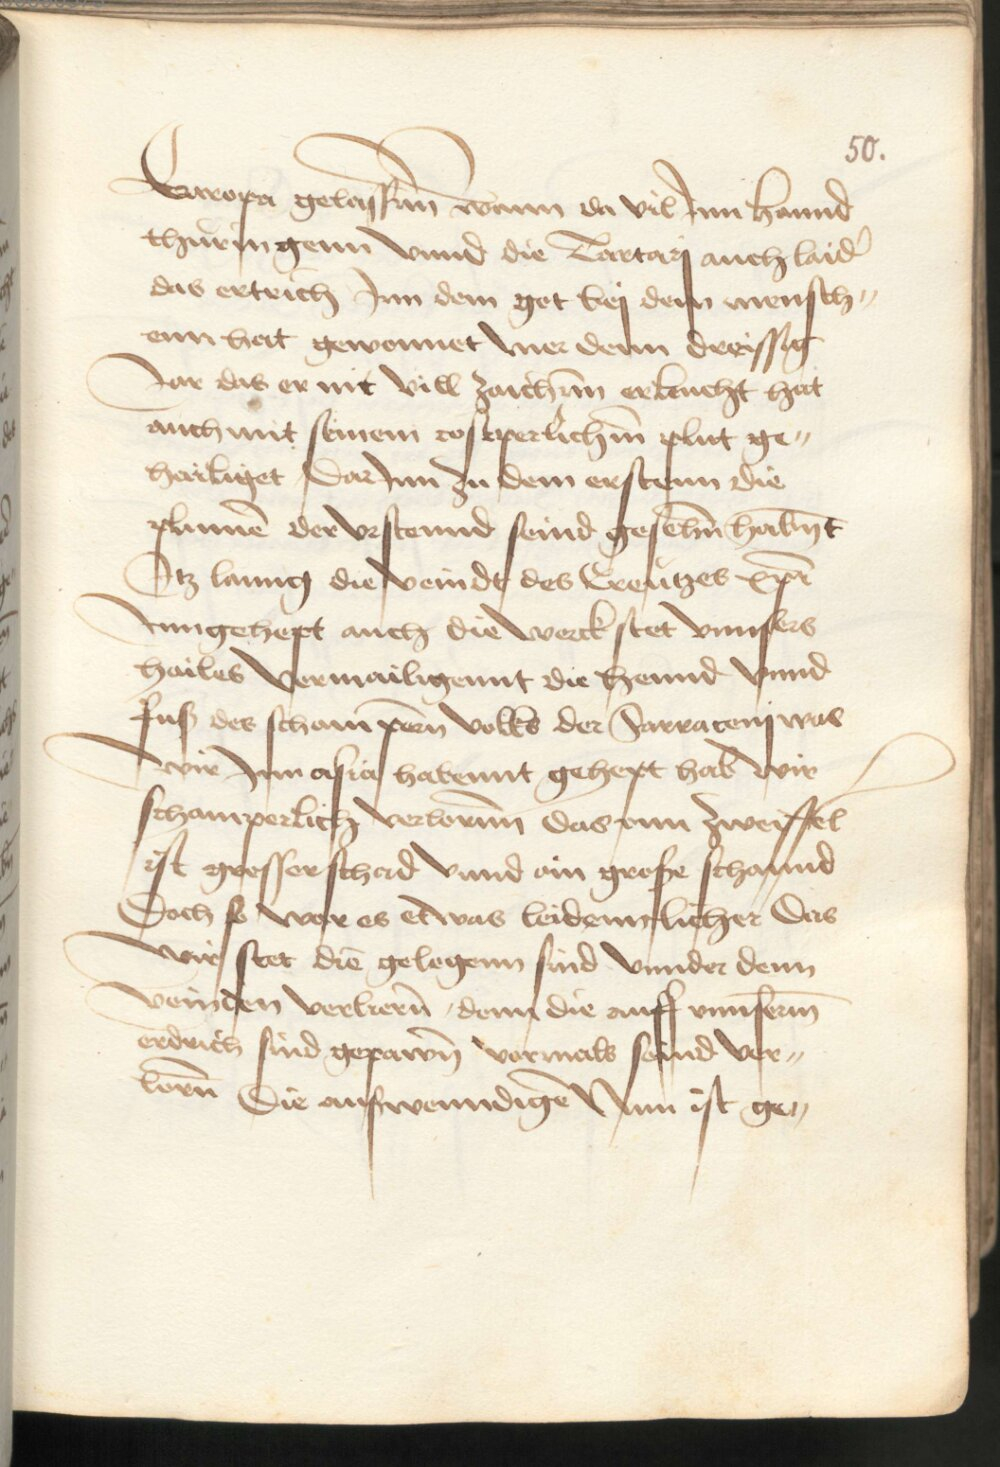 50.
Europa gelassenn wann da vil Inn hannd
thuringenn vnnd die Tartarj auch laid
das ertrich Inn dem got bej denn mensch„
enn hat gewonnet mer denn dreissig
Jar das er mit vill zaichenn erleucht hat
auch mit seinem costperlichem plut ge„
hailiget Darinn zu dem erstenn die
plumē der vrstennd seind gesehn habnt
Itz lanng die veindt des Creutzes xpi
Inngehept auch die werckstet vnnsers
hailes vermailigennt die hennd vnnd
fuß des schampern volcks der Sarracenj was
wir Inn asia habennt gehept hab wir
schamperlich verlornn das enn zweiffel
ist grosser schad vnnd ain große schannd
Doch so wer es etwas leidennlicher Das
wir stet die gelegenn sind vnnder denn
veinden verliern, denn die auff vnnserm
erdrich sind gepawn vormals seind ver„
lorn Die auswenndigē Nun ist ge„